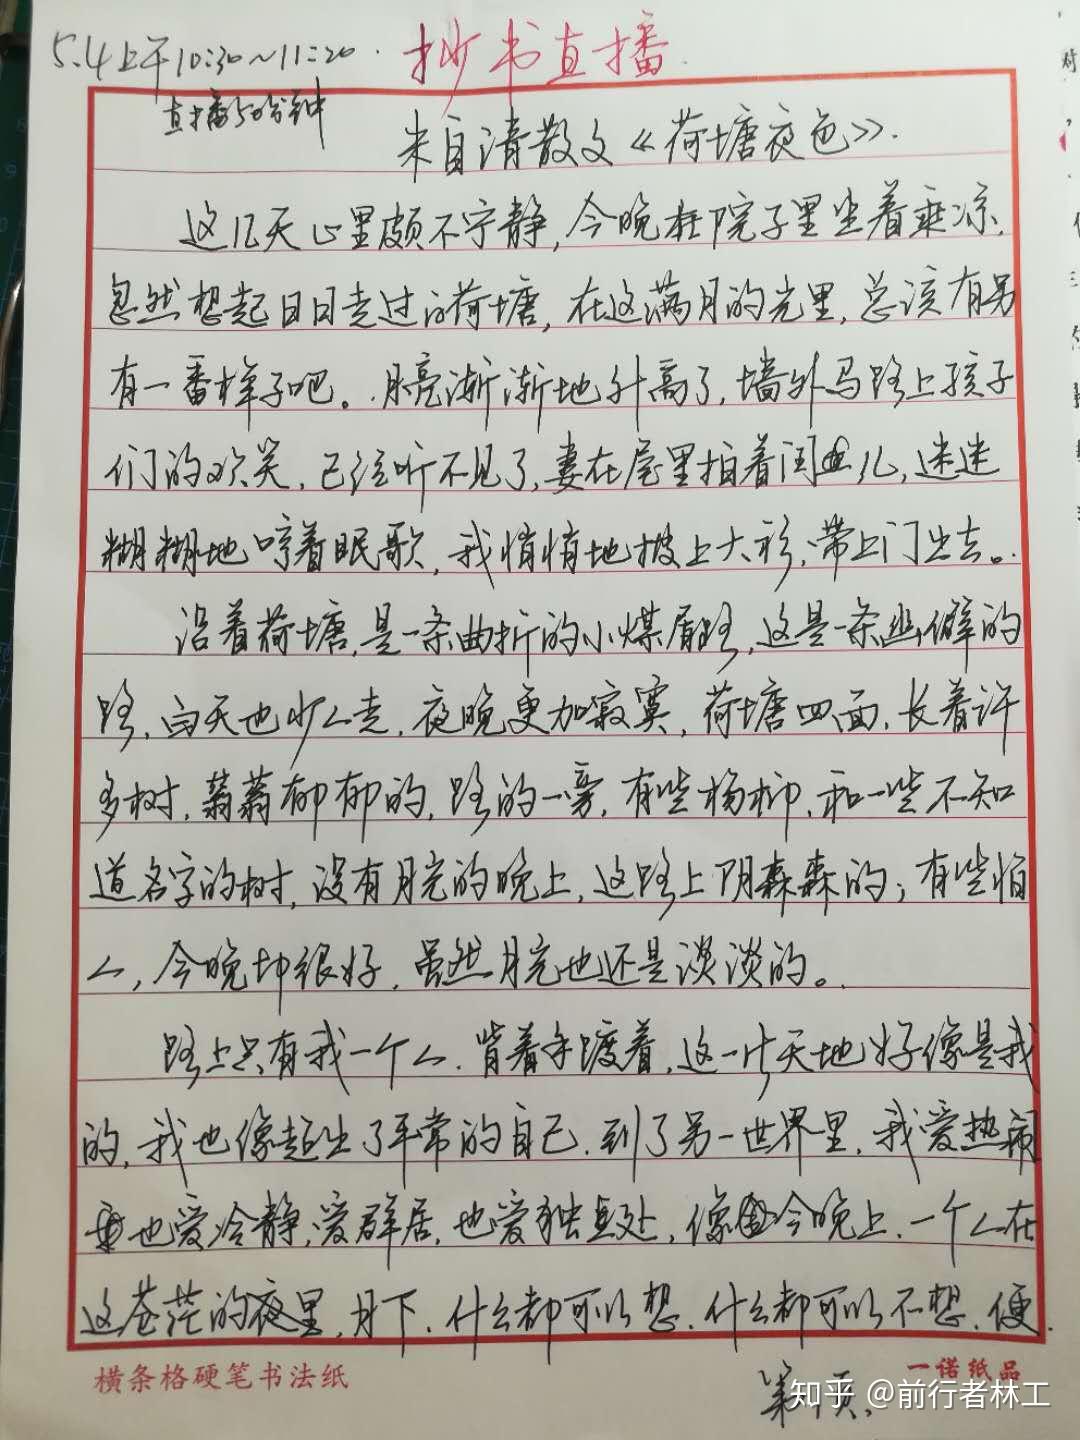 5.4上午10:30~11:20. 抄书直播.
直播50分钟
朱自清散文《荷塘夜色》.
这几天心里颇不宁静,今晚在院子里坐着乘凉,
忽然想起日日走过的荷塘,在这满月的光里,总该有另
有一番样子吧。月亮渐渐地升高了,墙外马路上孩子
们的欢笑,已经听不见了,妻在屋里拍着闰儿,迷迷
糊糊地哼着眠歌,我悄悄地披上大衫,带上门出去。
沿着荷塘,是一条曲折的小煤屑路,这是一条幽僻的
路,白天也少人走,夜晚更加寂寞,荷塘四面,长着许
多树,蓊蓊郁郁的,路的一旁,有些杨柳,和一些不知
道名字的树,没有月光的晚上,这路上阴森森的;有些怕
人,今晚却很好,虽然月光也还是淡淡的。
路上只有我一个人.背着手踱着,这一片天地好像是我
的,我也像超出了平常的自己.到了另一世界里,我爱热闹
也爱冷静,爱群居,也爱独处,像今晚上.一个人在
这苍茫的夜里,月下.什么都可以想.什么都可以不想.便.
横条格硬笔书法纸 一诺纸品
第1页、
知乎 @前行者林工
对